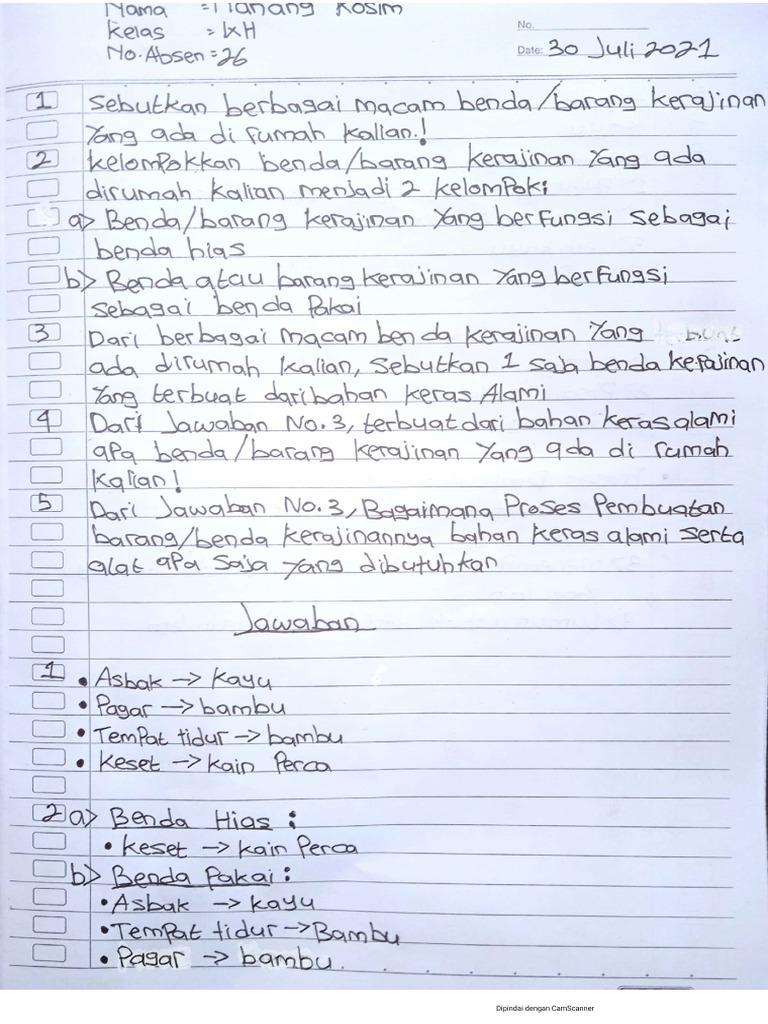 Nama = Nanang Kosim
Kelas = IXH
No.Absen = 26
No.
Date: 30 Juli 2021
1 Sebutkan berbagai macam benda/barang kerajinan
Yang ada di rumah kalian.!
2 Kelompokkan benda/barang kerajinan Yang ada
dirumah kalian menjadi 2 kelompok;
a> Benda/barang kerajinan Yang berfungsi sebagai
benda hias
b> Benda atau barang kerajinan Yang berfungsi
sebagai benda Pakai
3 Dari berbagai macam benda kerajinan Yang
ada dirumah kalian, sebutkan 1 saja benda kerajinan
Yang terbuat dari bahan keras Alami
4 Dari Jawaban No.3, terbuat dari bahan keras alami
apa benda/barang kerajinan Yang ada di rumah
Kalian!
5 Dari Jawaban No.3, Bagaimana Proses Pembuatan
barang/benda kerajinannya bahan keras alami serta
alat apa saja Yang dibutuhkan
Jawaban
1 • Asbak → Kayu
• Pagar → bambu
• Tempat tidur → bambu
• Keset → Kain Perca
2 a> Benda Hias :
• Keset → Kain Perca
b> Benda Pakai :
• Asbak → Kayu
• Tempat tidur → Bambu
• Pagar → bambu.
Dipindai dengan CamScanner